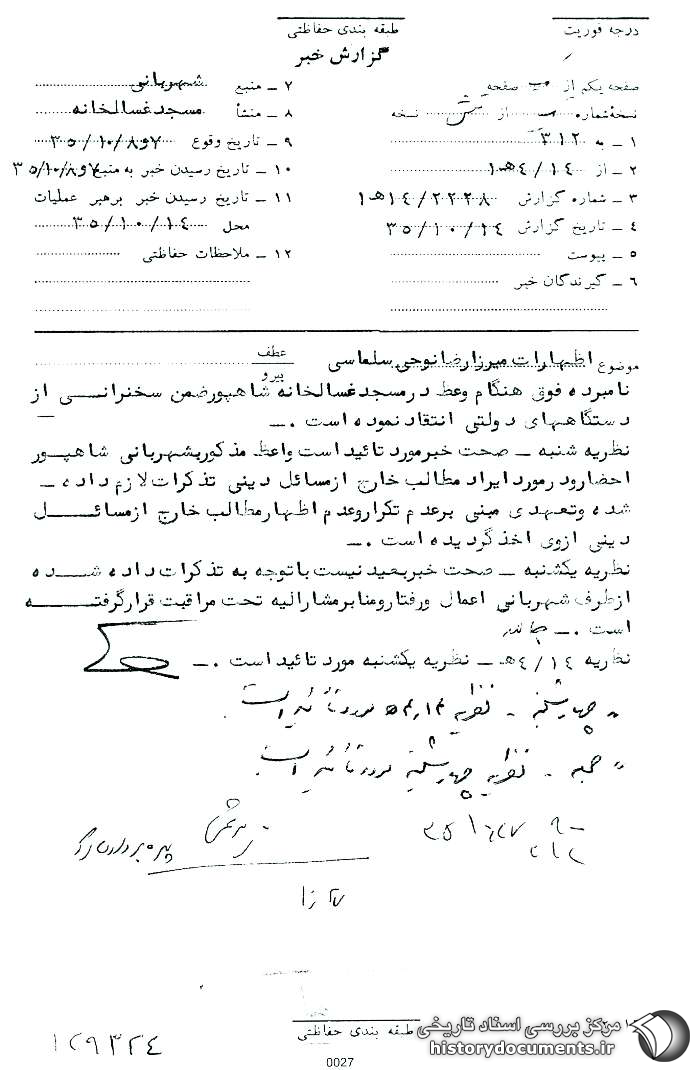 درجه فوریت
طبقه بندی حفاظتی
گزارش خبر
صفحه یکم از صفحه
نسخه شماره از شش نسخه
۱ - به ۳۱۲
۲ - از ۴/۱۴ هـ ۱
۳ - شماره گزارش ۲۲۲۸/۱۴ هـ ۱
۴ - تاریخ گزارش ۳۵/۱۰/۱۴
۵ - پیوست
۶ - گیرندگان خبر
۷ - منبع شهربانی
۸ - منشأ مسجد غسالخانه
۹ - تاریخ وقوع
۱۰ - تاریخ رسیدن خبر به منبع
۱۱ - تاریخ رسیدن خبر برهبر عملیات
محل ۳۵/۱۰/۱۴
۱۲ - ملاحظات حفاظتی
موضوع اظهارات میرزا رضا نوحی سلماسی
عطف
پیرو
نامبرده فوق هنگام وعظ در مسجد غسالخانه شاهپور ضمن سخنرانی از
دستگاههای دولتی انتقاد نموده است .-
نظریه شنبه - صحت خبر مورد تائید است واعظ مذکور بشهربانی شاهپور
احضار و در مورد ایراد مطالب خارج از مسائل دینی تذکرات لازم داده -
شده و تعهدی مبنی بر عدم تکرار و عدم اظهار مطالب خارج از مسائل
دینی از وی اخذ گردیده است .-
نظریه یکشنبه - صحت خبر بعید نیست با توجه به تذکرات داده شده
از طرف شهربانی اعمال و رفتار و منابر مشارالیه تحت مراقبت قرار گرفته
است .-
نظریه ۴/۱۴ هـ - نظریه یکشنبه مورد تائید است .-
" چهارشنبه - نظریه ۴/۱۴ هـ مورد تائید است.
" جمعه - نظریه چهارشنبه مورد تائید است.
طبقه بندی حفاظتی
۱۲۹۳۲۴
0027
مرکز بررسی اسناد تاریخی
historydocuments.ir